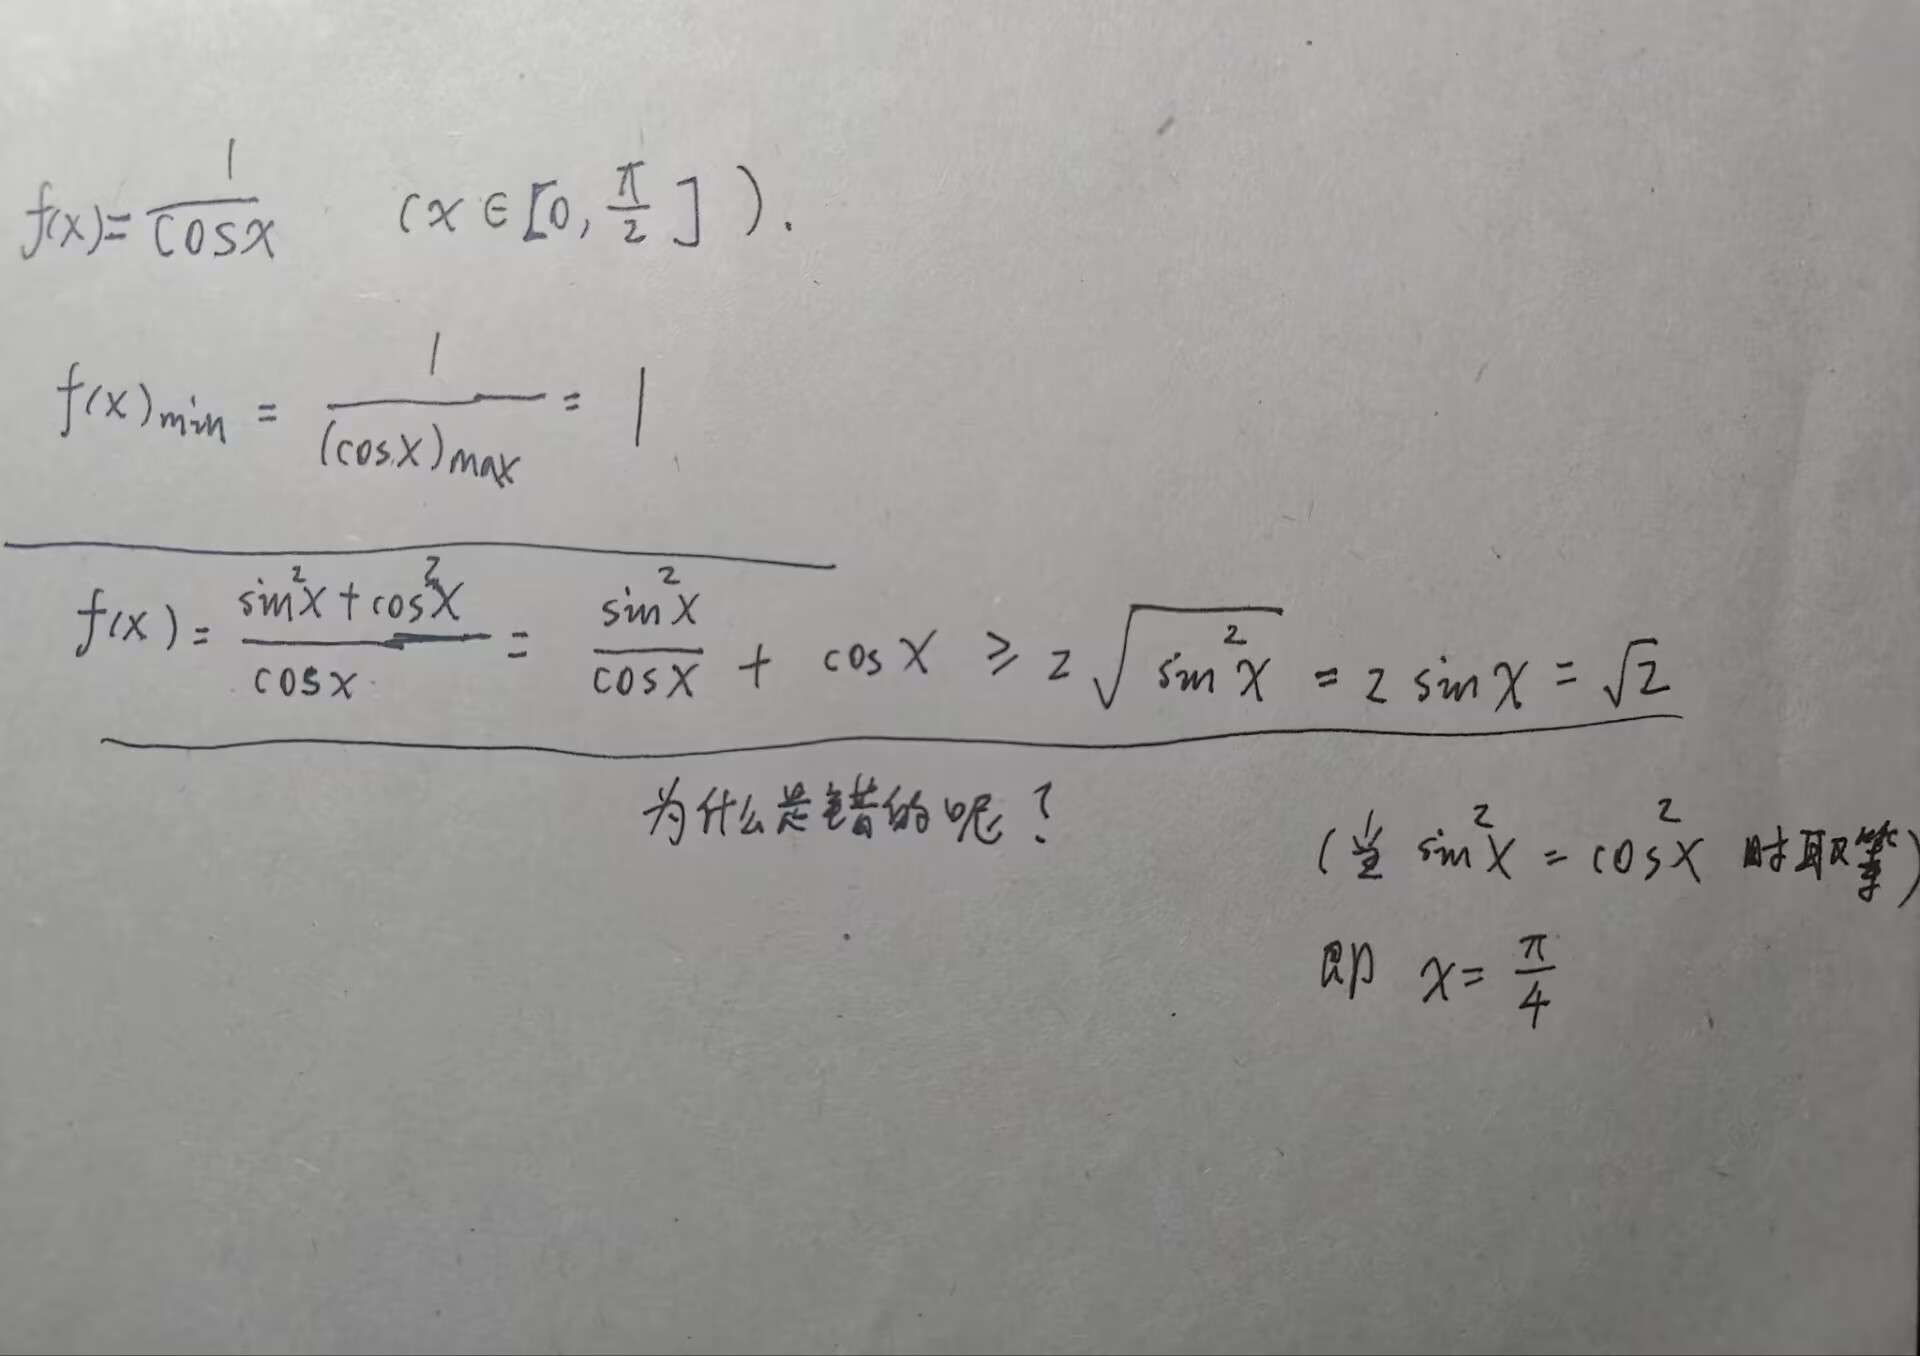 f(x)=1/cosx (x∈[0, π/2]).
f(x)min = 1/(cosx)max = 1
f(x)= (sin²x+cos²x)/cosx = sin²x/cosx + cosx ≥ 2√(sin²x) = 2 sinx = √2
为什么是错的呢?
(当 sin²x = cos²x 时取等)
即 x= π/4